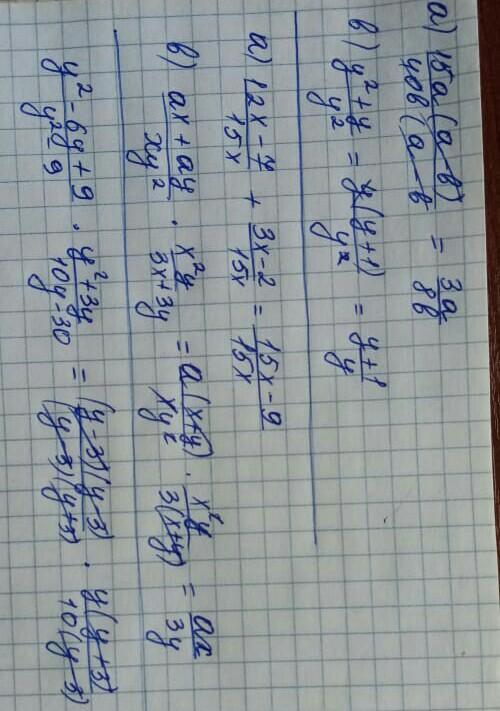 а) 15a(a-b)/40b(a-b = 3a/8b
в) y²+y/y² = y(y+1)/y² = y+1/y
а) 12x-7/15x + 3x-2/15x = 15x-9/15x
в) ax+ay/xy² · x²y/3x+3y = a(x+y)/xy² · x²y/3(x+y) = ax/3y
y²-6y+9/y²-9 · y²+3y/10y-30 = (y-3)(y-3)/(y-3)(y+3) · y(y+3)/10(y-3)